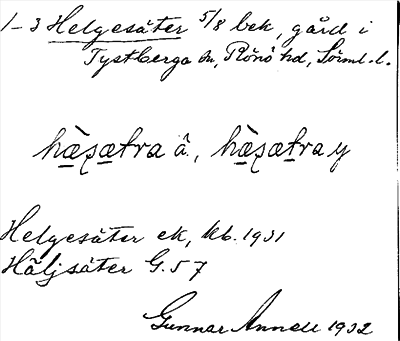 1-3 Helgesäter 5/8 bek, gård i
Tystberga sn, Rönö hd, Sörml. l.
hæ̀ʂætra å., hæ̀ʂætra y
Helgesäter ek, kb. 1931
Häljsäter G. 57
Gunnar Annell 1932